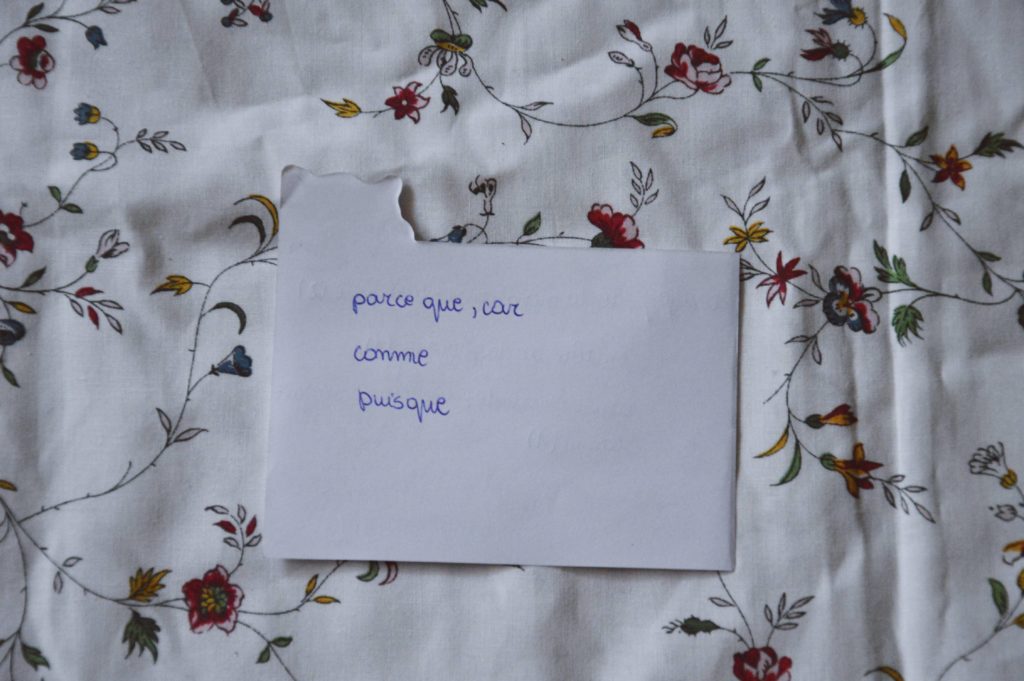 parce que, car
comme
puisque